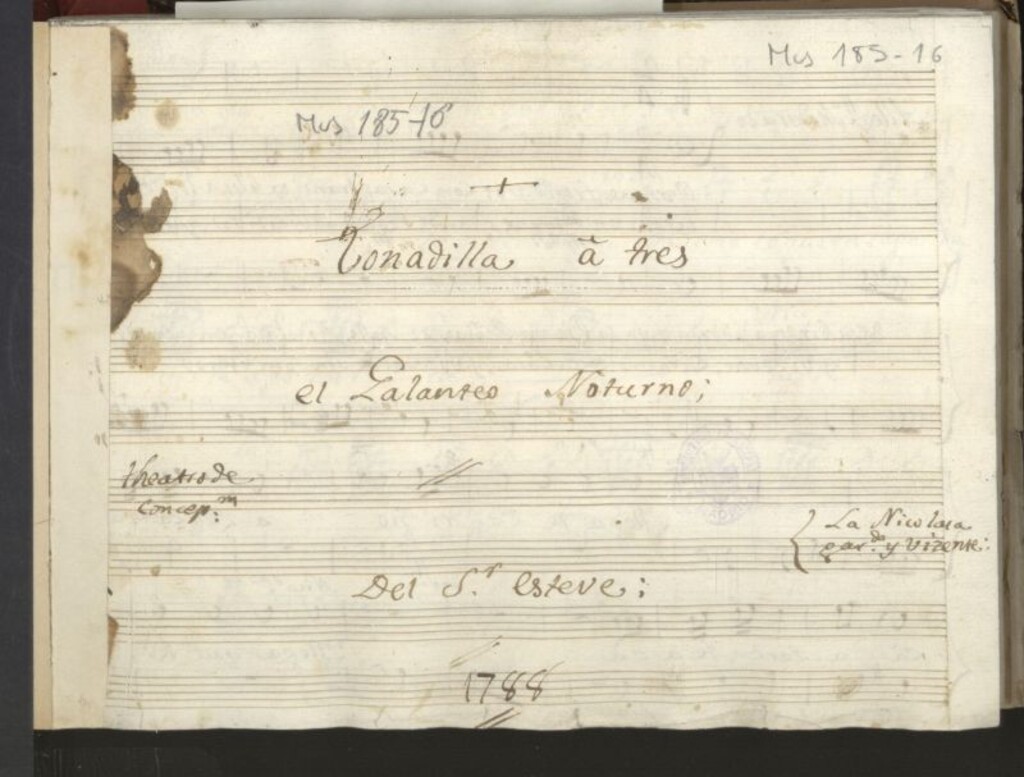 Mus 185-16
Mus 185-16
Tonadilla â tres
el Galanteo Noturno;
theatro de
Concep.n
La Nicolasa
gar.do y Vizente:
Del S.r Esteve;
1788